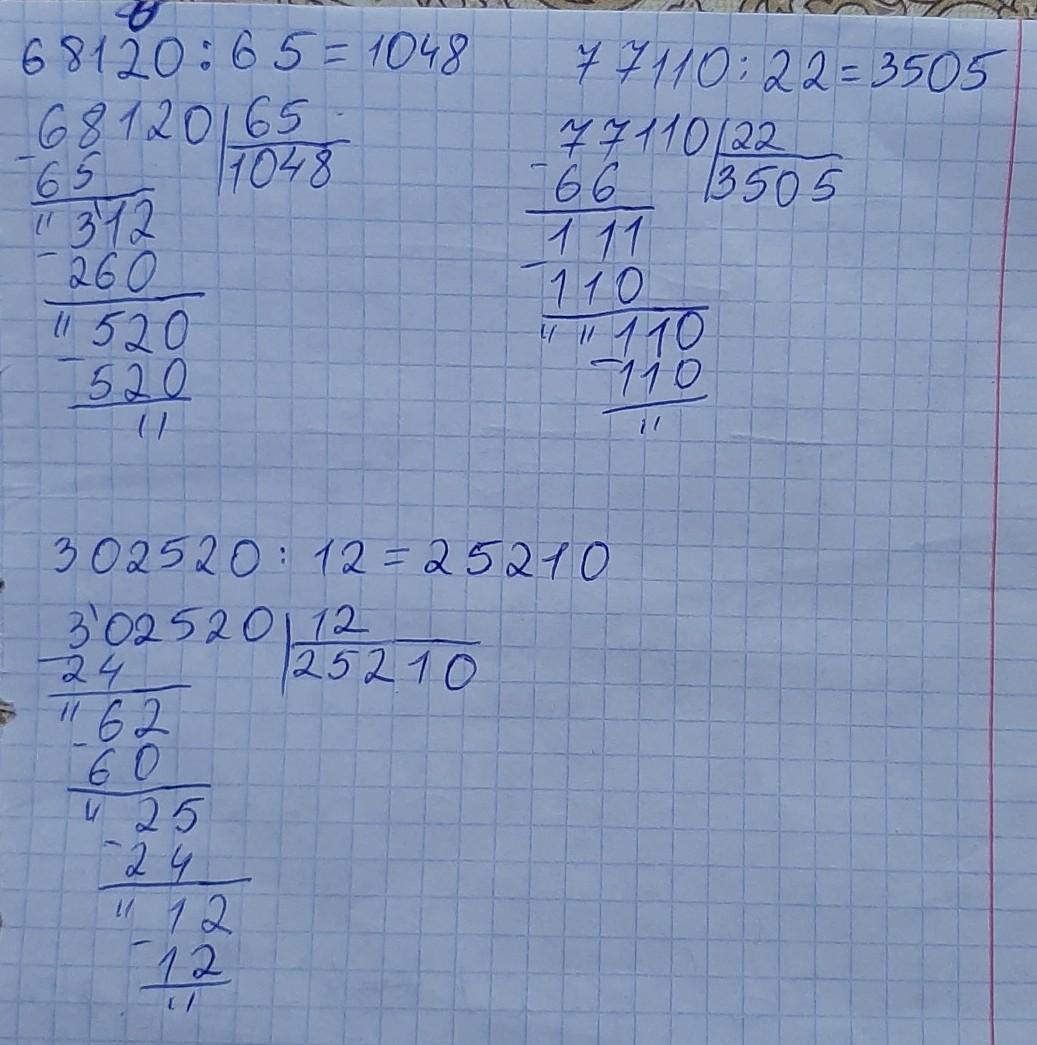 68120:65=1048
68120 65
1048
-65
" 3'12
-260
" 520
-520
"
77110:22=3505
77110 22
3505
-66
111
-110
" " 110
-110
"
302520:12=25210
3'02520 12
25210
-24
" 62
-60
" 25
-24
" 12
-12
"